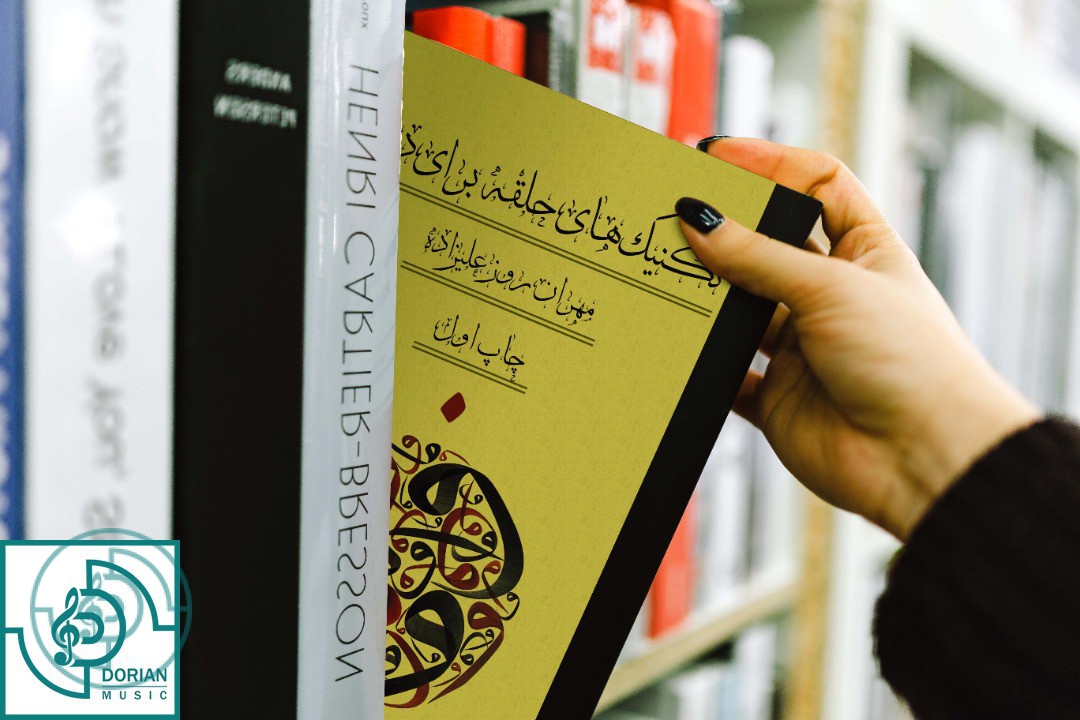 ANDERS
PETERSEN
HENRI CARTIER-BRESSON
تکنیک های حلقهٔ برای
مهران روز علیزاده
چاپ اول
DORIAN
MUSIC